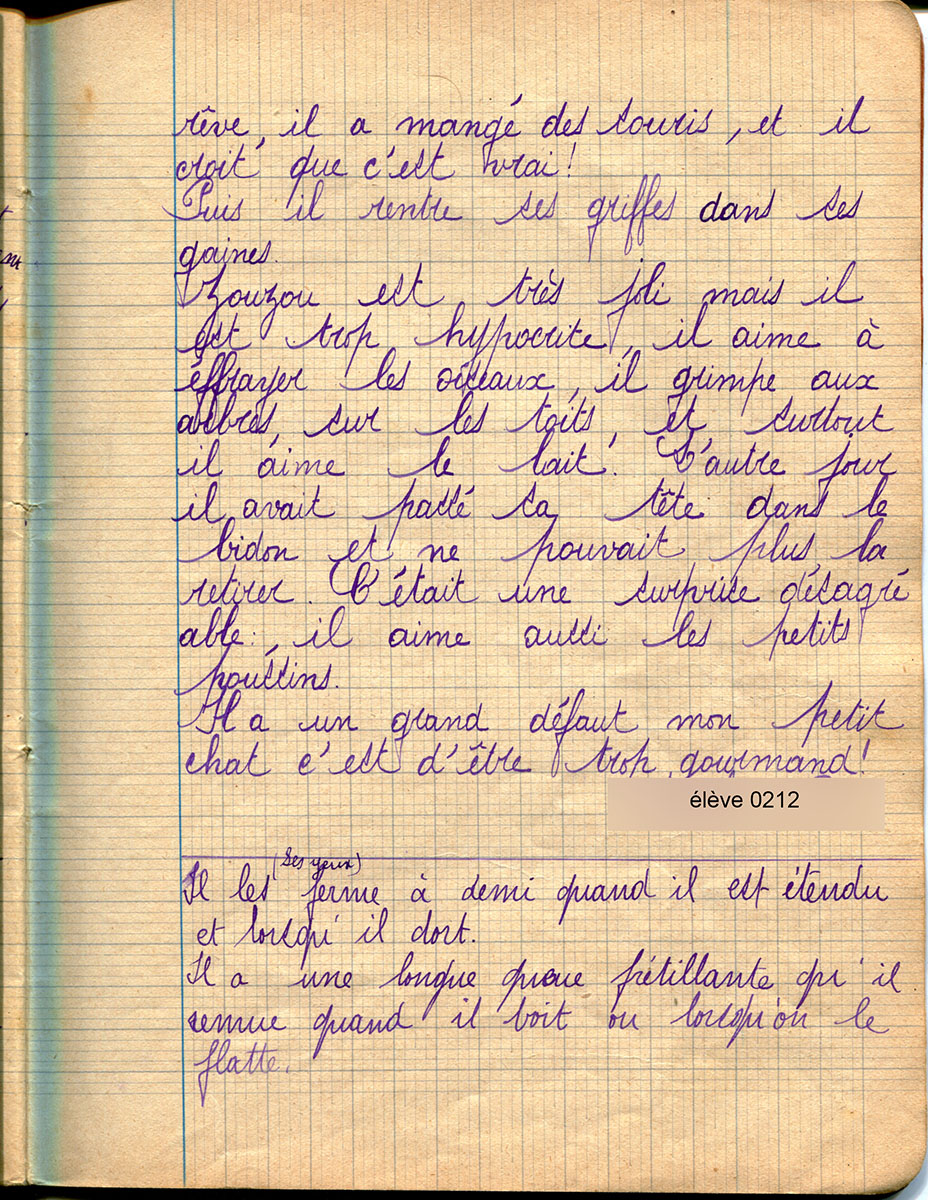 rêve, il a mangé des souris, et il
croit, que c'est vrai !
Puis il rentre ses griffes dans ses
gaines.
Zouzou est très joli mais il
est trop hypocrite, il aime à
éffrayer les oiseaux, il grimpe aux
arbres, sur les toits, et surtout
il aime le lait. L'autre jour
il avait passé sa tête dans le
bidon et ne pouvait plus la
retirer. C'était une surprise désagré
able, il aime aussi les petits
poussins.
Il a un grand défaut mon petit
chat c'est d'être trop gourmand !
élève 0212
(Ses yeux)
Il les ferme à demi quand il est étendu
et lorsqu'il dort.
Il a une longue queue frétillante qu'il
remue quand il boit ou lorsqu'on le
flatte.